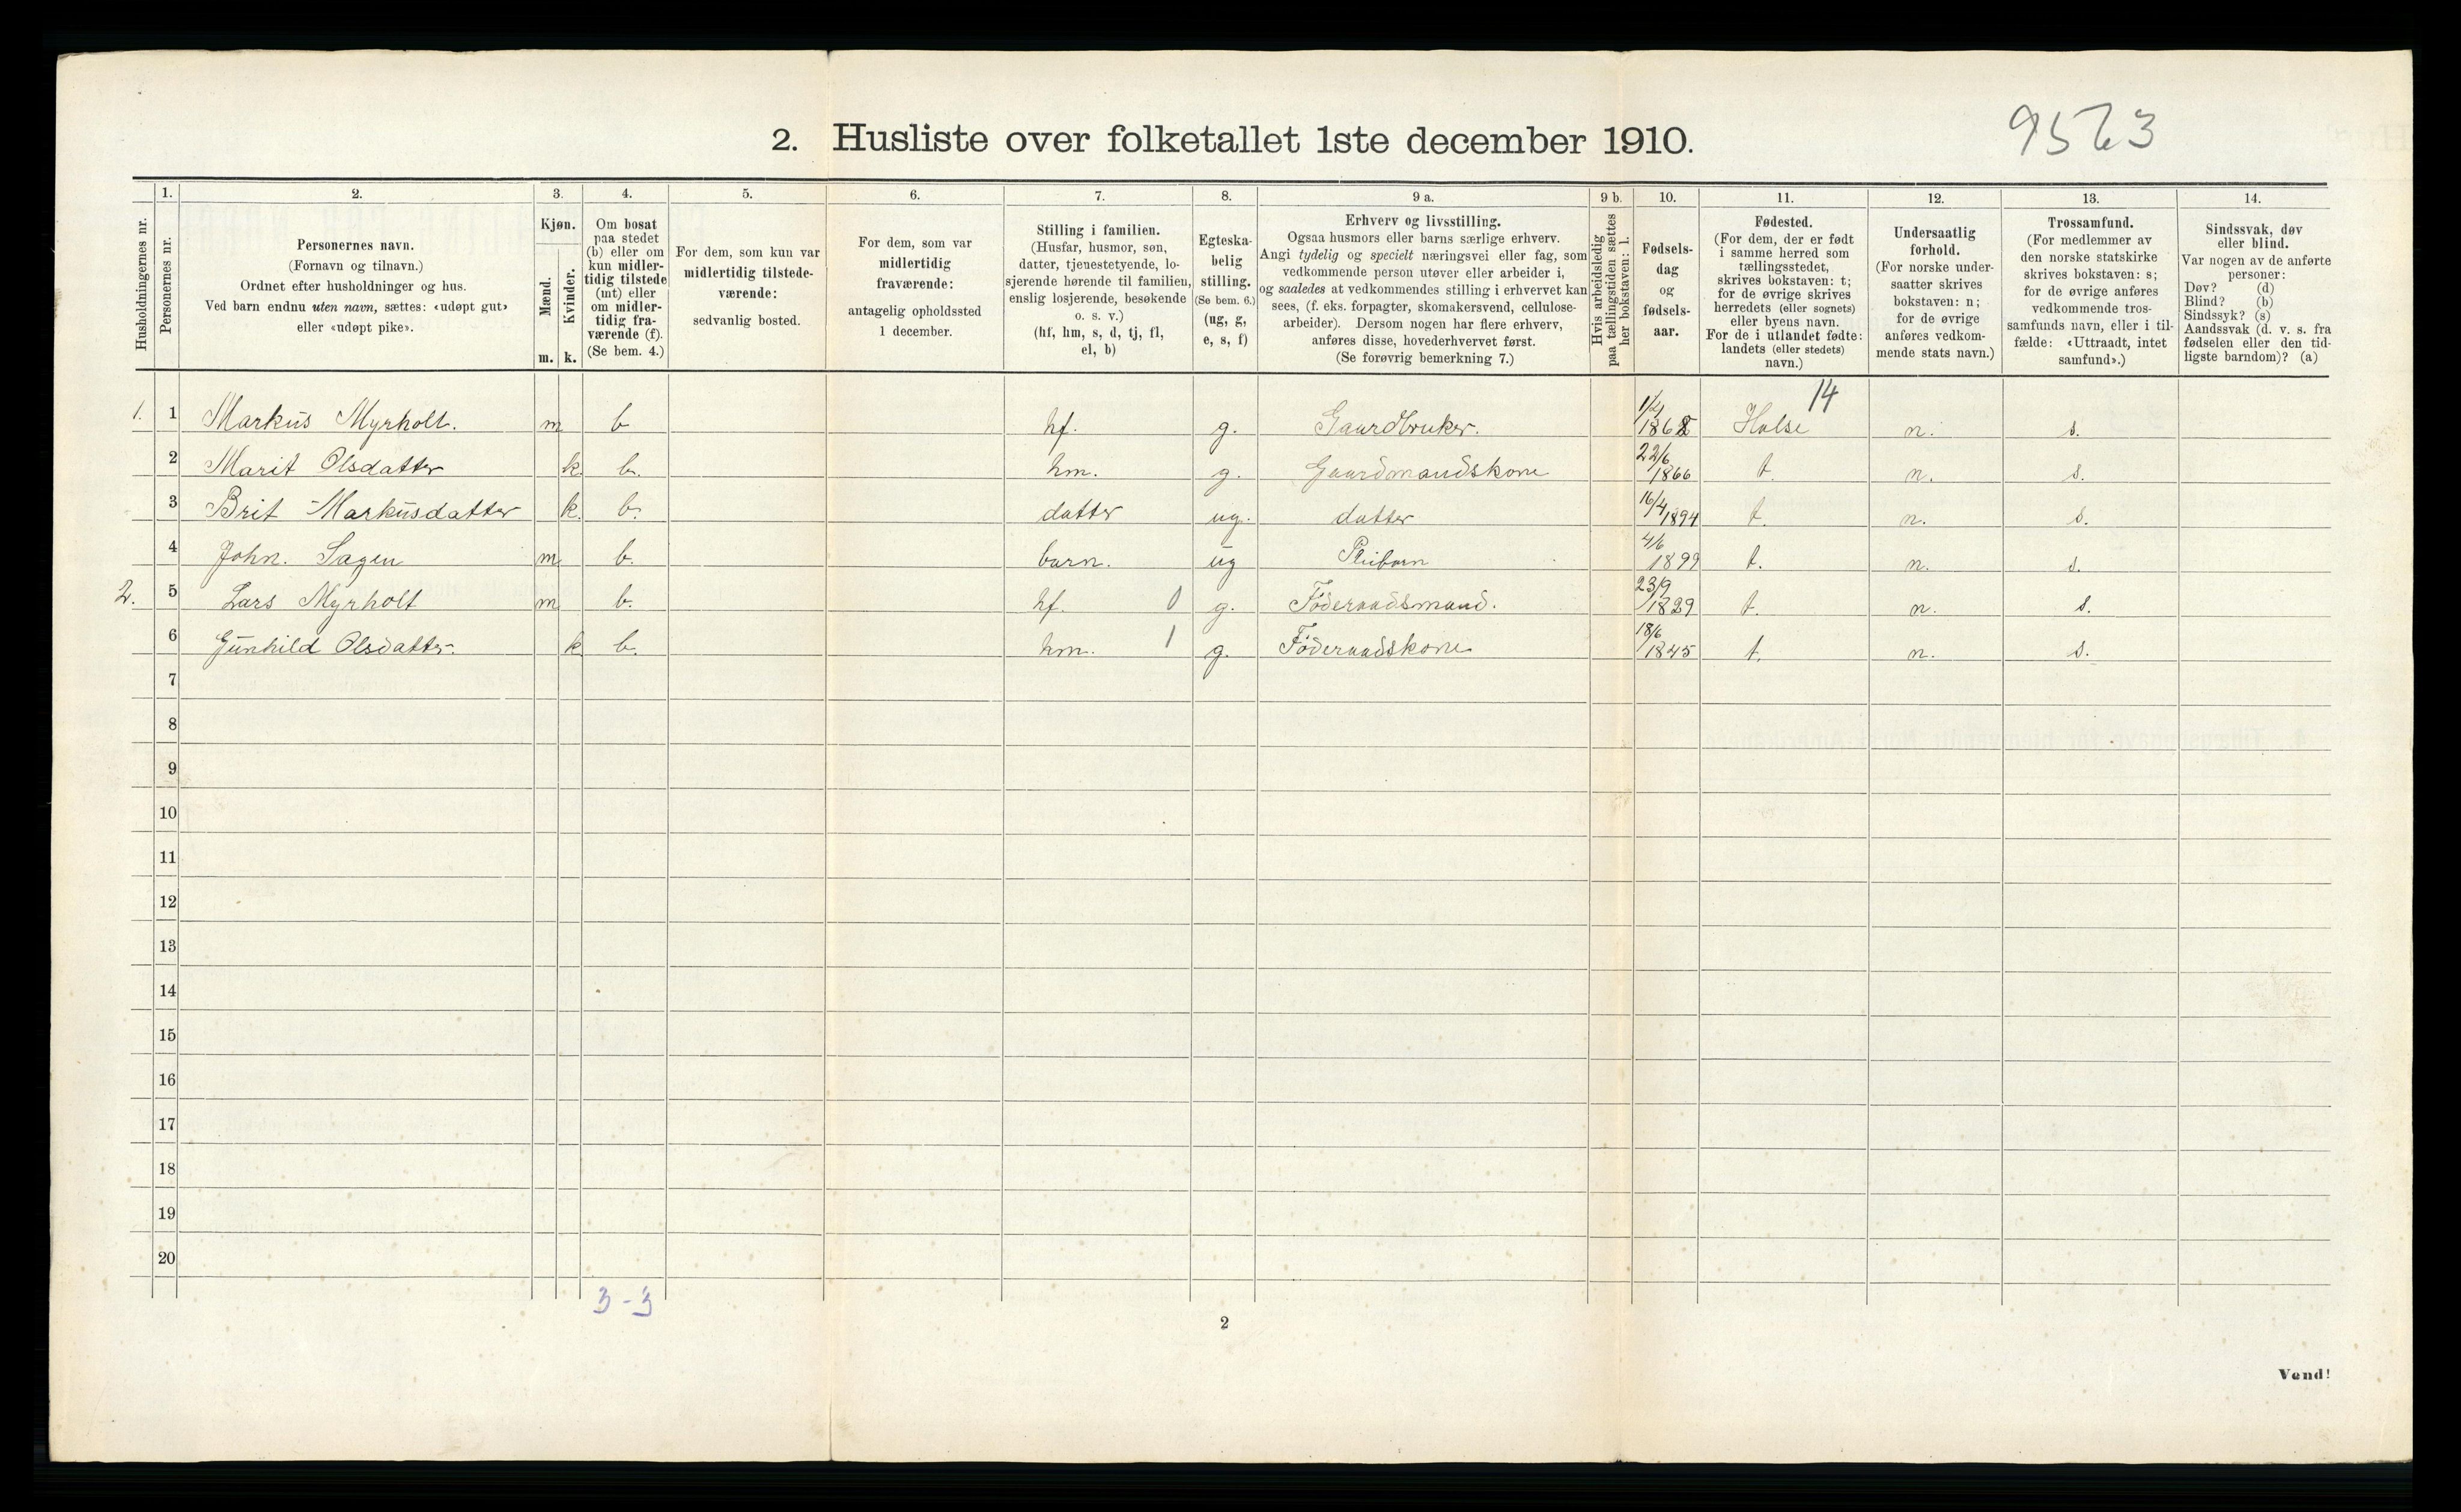 9563
2. Husliste over folketallet 1ste december 1910.
Husholdningernes nr.
1.
Personernes nr.
2.
Personernes navn.
(Fornavn og tilnavn.)
Ordnet efter husholdninger og hus.
Ved barn endnu uten navn, sættes: «udøpt gut»
eller «udøpt pike».
3.
Kjøn.
Mænd.
Kvinder.
m. k.
4.
Om bosat
paa stedet
(b) eller om
kun midler-
tidig tilstede
(mt) eller
om midler-
tidig fra-
værende (f).
(Se bem. 4.)
5.
For dem, som kun var
midlertidig tilstede-
værende:
sedvanlig bosted.
6.
For dem, som var
midlertidig
fraværende:
antagelig opholdssted
1 december.
7.
Stilling i familien.
(Husfar, husmor, søn,
datter, tjenestetyende, lo-
sjerende hørende til familien,
enslig losjerende, besøkende
o. s. v.)
(hf, hm, s, d, tj, fl,
el, b)
8.
Egteska-
belig
stilling.
(Se bem. 6.)
(ug, g,
e, s, f)
9 a.
Erhverv og livsstilling.
Ogsaa husmors eller barns særlige erhverv.
Angi tydelig og specielt næringsvei eller fag, som
vedkommende person utøver eller arbeider i,
og saaledes at vedkommendes stilling i erhvervet kan
sees, (f. eks. forpagter, skomakersvend, cellulose-
arbeider). Dersom nogen har flere erhverv,
anføres disse, hovederhvervet først.
(Se forøvrig bemerkning 7.)
9 b.
Hvis arbeidsledig
paa tællingstiden sættes
her bokstaven: l.
10.
Fødsels-
dag
og
fødsels-
aar.
11.
Fødested.
(For dem, der er født
i samme herred som
tællingsstedet,
skrives bokstaven: t;
for de øvrige skrives
herredets (eller sognets)
eller byens navn.
For de i utlandet fødte:
landets (eller stedets)
navn.)
12.
Undersaatlig
forhold.
(For norske under-
saatter skrives
bokstaven: n;
for de øvrige
anføres vedkom-
mende stats navn.)
13.
Trossamfund.
(For medlemmer av
den norske statskirke
skrives bokstaven: s;
for de øvrige anføres
vedkommende tros-
samfunds navn, eller i til-
fælde: «Uttraadt, intet
samfund».)
14.
Sindssvak, døv
eller blind.
Var nogen av de anførte
personer:
Døv? (d)
Blind? (b)
Sindssyk? (s)
Aandssvak (d. v. s. fra
fødselen eller den tid-
ligste barndom)? (a)
14
1. 1 Markus Myrholt. m b hf. g. Gaardbruker. 1/4 1868 Halse n. s.
2 Marit Olsdatter k. b. hm. g. Gaardmandskone 22/6 1866 t. n. s.
3 Brit Markusdatter k. b. datter ug. datter 16/4 1894 t. n. s.
4 John. Sagen m b. barn. ug Pleibarn 4/6 1899 t. n. s.
2. 5 Lars Myrholt m b. hf. 0 g. Föderaadsmand. 23/9 1829 t. n. s.
6 Gunhild Olsdatter. k b. hm. 1 g. Föderaadskone 18/6 1845 t. n. s.
7
8
9
10
11
12
13
14
15
16
17
18
19
20
3-3
2
Vend!